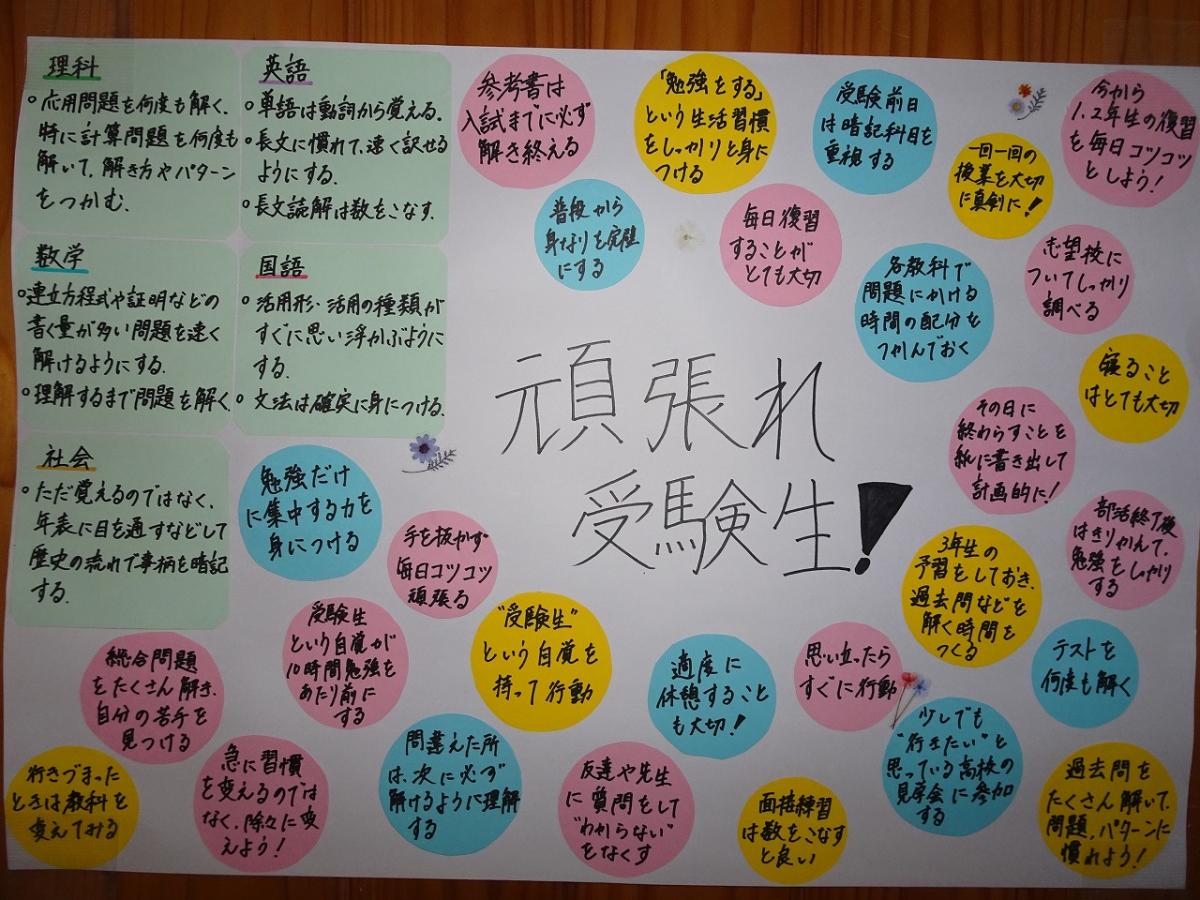 理科
○応用問題を何度も解く.
特に計算問題を何度も
解いて、解き方やパターン
をつかむ.
英語
○単語は動詞から覚える.
○長文に慣れて、速く訳せる
ようにする.
○長文読解は数をこなす.
数学
○連立方程式や証明などの
書く量が多い問題を速く
解けるようにする.
○理解するまで問題を解く.
国語
○活用形・活用の種類が
すぐに思い浮かぶように
する.
○文法は確実に身につける.
社会
○ただ覚えるのではなく、
年表に目を通すなどして
歴史の流れで事柄を暗記
する.
参考書は
入試までに必ず
解き終える
「勉強をする」
という生活習慣
をしっかりと身に
つける
受験前日
は暗記科目を
重視する
一回一回の
授業を大切
に真剣に!
今から
1.2年生の復習
を毎日コツコツ
としよう!
普段から
身なりを完璧
にする
毎日復習
することが
とても大切
各教科で
問題にかける
時間の配分を
つかんでおく
志望校に
ついてしっかり
調べる
寝ること
はとても大切
頑張れ
受験生!
その日に
終わらすことを
紙に書き出して
計画的に!
部活終了後
はきりかえて、
勉強をしっかり
する
勉強だけ
に集中する力を
身につける
手を抜かず
毎日コツコツ
頑張る
3年生の
予習をしておき、
過去問などを
解く時間を
つくる
受験生
という自覚が
10時間勉強を
あたり前に
する
"受験生"
という自覚を
持って行動
適度に
休憩すること
も大切!
思い立ったら
すぐに行動
テストを
何度も解く
総合問題
をたくさん解き、
自分の苦手を
見つける
行きづまった
ときは教科を
変えてみる
急に習慣
を変えるのでは
なく、除々に変
えよう!
問違えた所
は、次に必ず
解けるように理解
する
友達や先生
に質問をして
"わからない"
をなくす
面接練習
は数をこなす
と良い
少しでも
"行きたい"と
思っている高校の
見学会に参加
する
過去問を
たくさん解いて、
問題、パターンに
慣れよう!